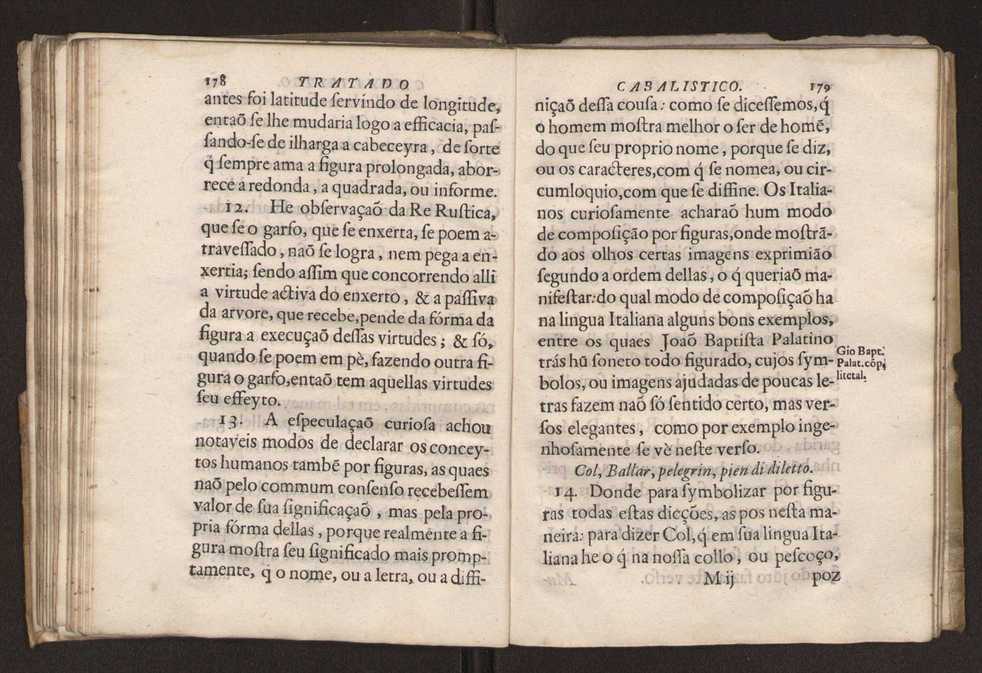 178 TRATADO
antes foi latitude ſervindo de longitude,
entaõ ſe lhe mudaria logo a efficacia, paſ-
ſando-ſe de ilharga a cabeceyra, de ſorte
q̃ ſempre ama a figura prolongada, abor-
rece a redonda, a quadrada, ou informe.
12. He obſervaçaõ da Re Ruſtica,
que ſe o garfo, que ſe enxerta, ſe poem a-
traveſſado, naõ ſe logra, nem pega a en-
xertia; ſendo aſſim que concorrendo alli
a virtude activa do enxerto, & a paſſiva
da arvore, que recebe, pende da fórma da
figura a execuçaõ deſſas virtudes; & ſó,
quando ſe poem em pè, fazendo outra fi-
gura o garfo, entaõ tem aquellas virtudes
ſeu effeyto.
13. A eſpeculaçaõ curioſa achou
notaveis modos de declarar os concey-
tos humanos tambẽ por figuras, as quaes
naõ pelo commum conſenſo recebeſſem
valor de ſua ſignificaçaõ, mas pela pro-
pria fórma dellas, porque realmente a fi-
gura moſtra ſeu ſignificado mais promp-
tamente, q̃ o nome, ou a letra, ou a diffi-
CABALISTICO. 179
niçaõ deſſa couſa: como ſe diceſſemos, q̃
o homem moſtra melhor o ſer de homẽ,
do que ſeu proprio nome, porque ſe diz,
ou os caracteres, com q̃ ſe nomea, ou cir-
cumloquio, com que ſe diffine. Os Italia-
nos curioſamente acharaõ hum modo
de compoſição por figuras, onde moſtrã-
do aos olhos certas imagẽs exprimião
ſegundo a ordem dellas, o q̃ queriaõ ma-
nifeſtar: do qual modo de compoſiçaõ ha
na lingua Italiana alguns bons exemplos,
entre os quaes Joaõ Baptiſta Palatino
trás hũ ſoneto todo figurado, cujos ſym-
bolos, ou imagẽs ajudadas de poucas le-
tras fazem naõ ſó ſentido certo, mas ver-
ſos elegantes, como por exemplo inge-
nhoſamente ſe vè neſte verſo.
Gio Bapt.
Palat. cõp.
litetal.
Col, Ballar, pelegrin, pien di diletto.
14. Donde para ſymbolizar por figu-
ras todas eſtas dicções, as pos neſta ma-
neira: para dizer Col, q̃ em ſua lingua Ita-
liana he o q̃ na noſſa collo, ou peſcoço,
M ij poz